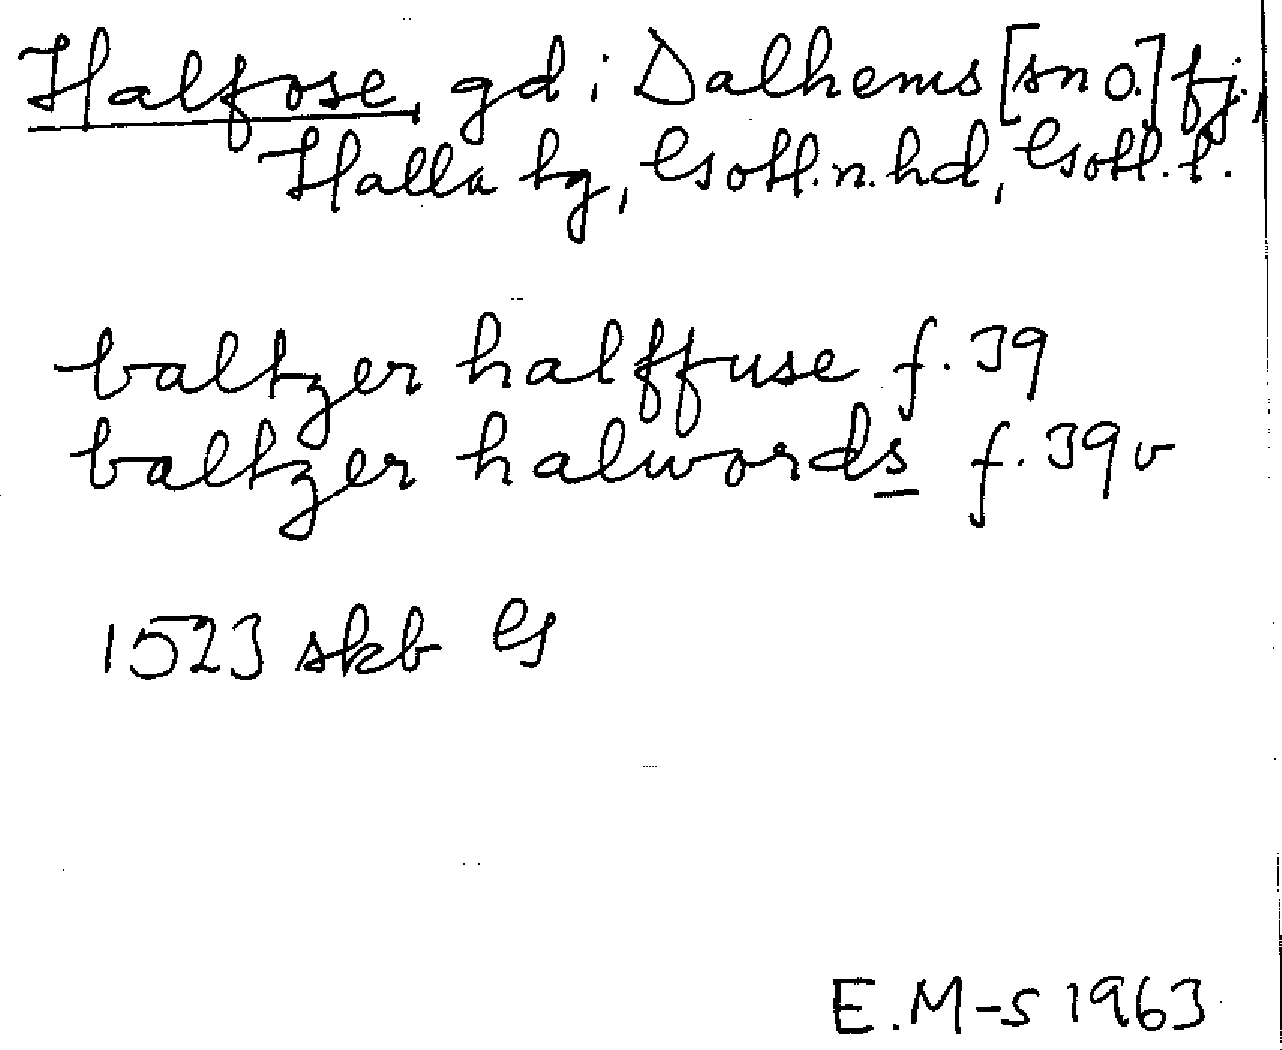 Halfose, gd i Dalhems [sn o.] fj.,
Halla tg, Gotl. n. hd, Gotl. l.
baltzer halffuse f. 39
baltzer halwords f. 39v
1523 skb G
E. M-S 1963